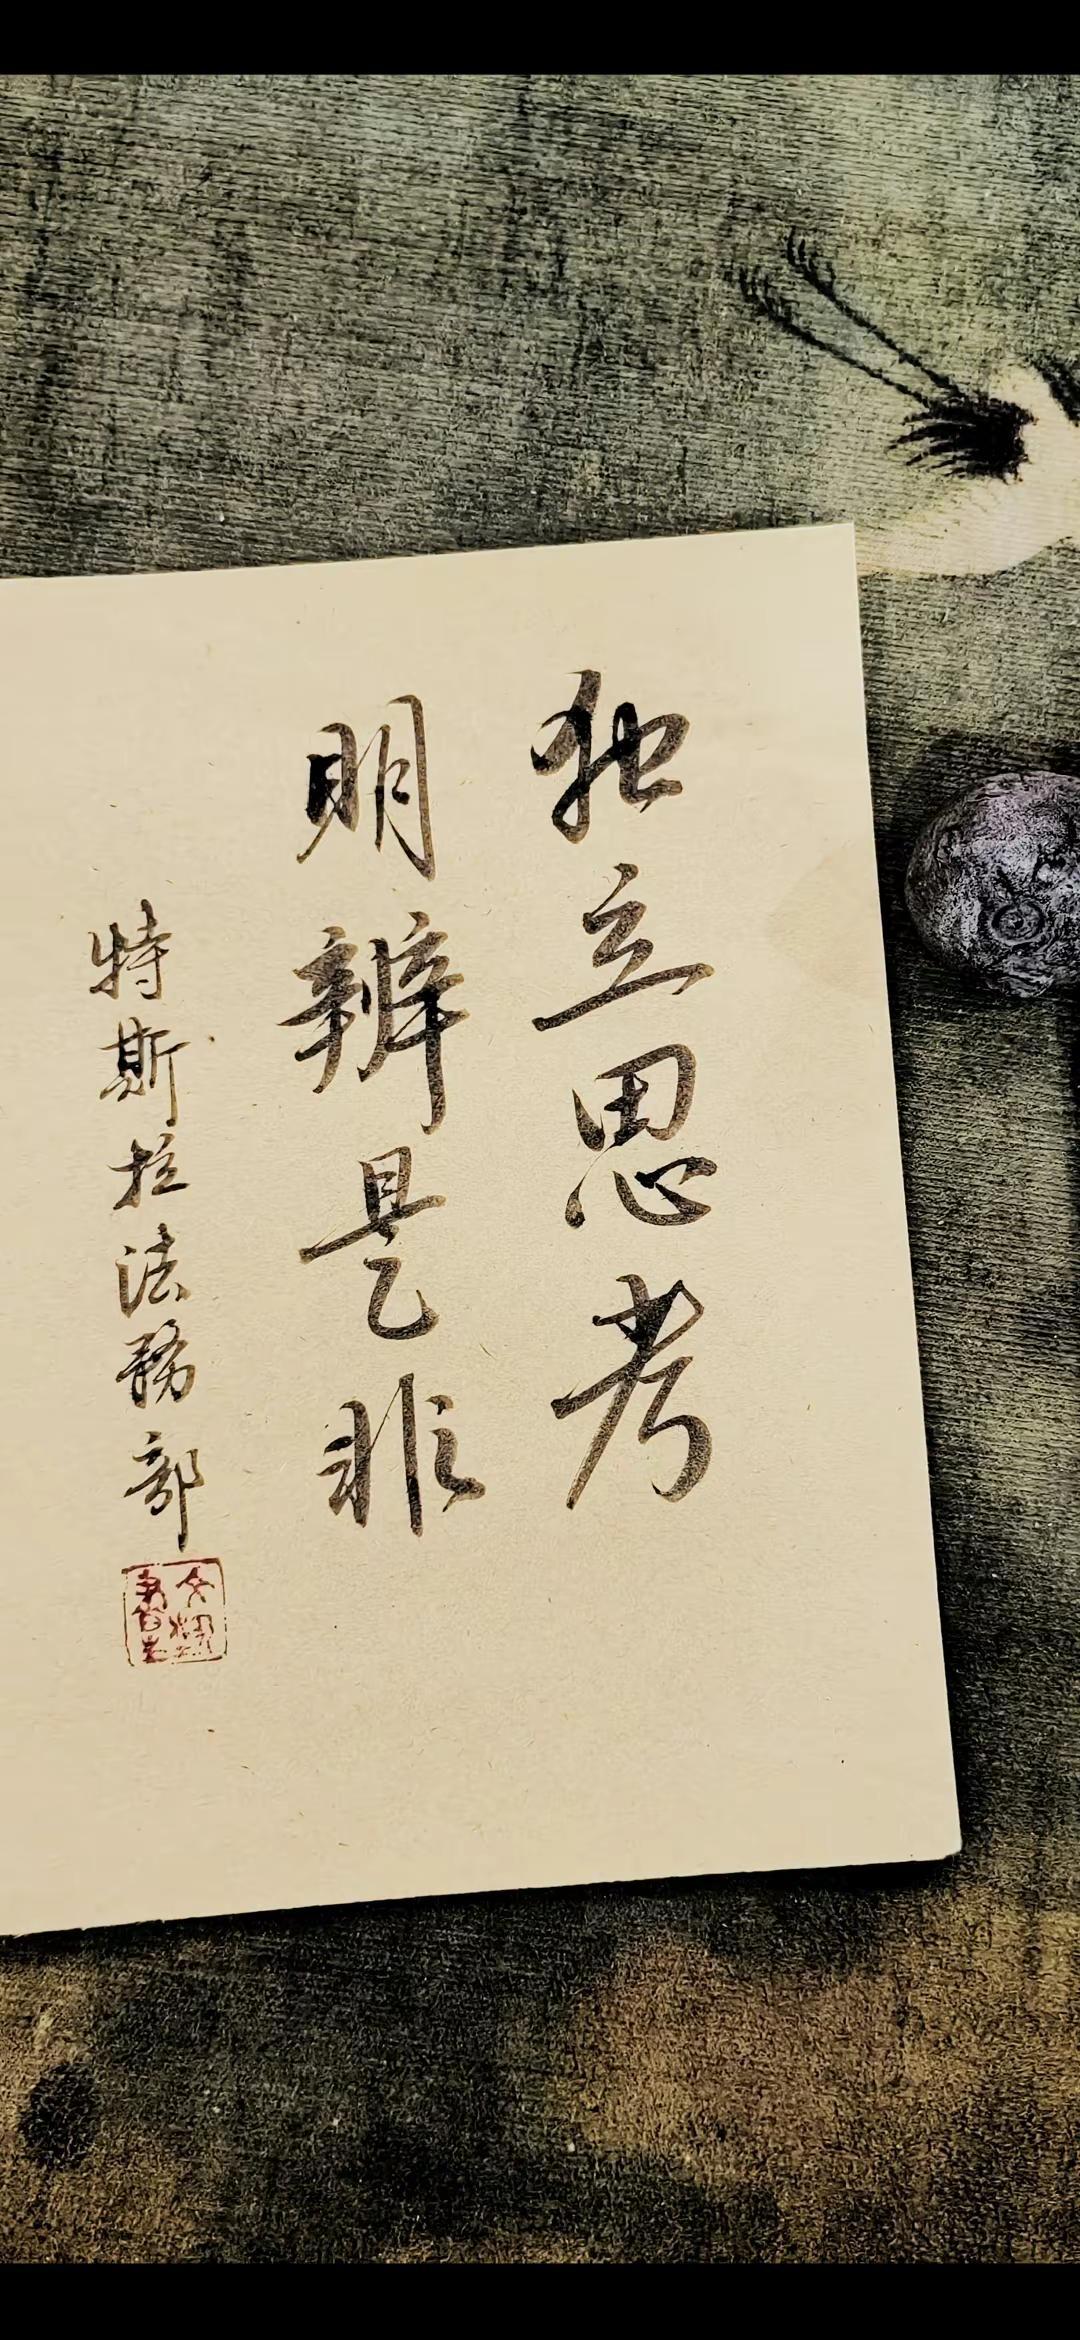 独立思考
明辨是非
特斯拉法務部